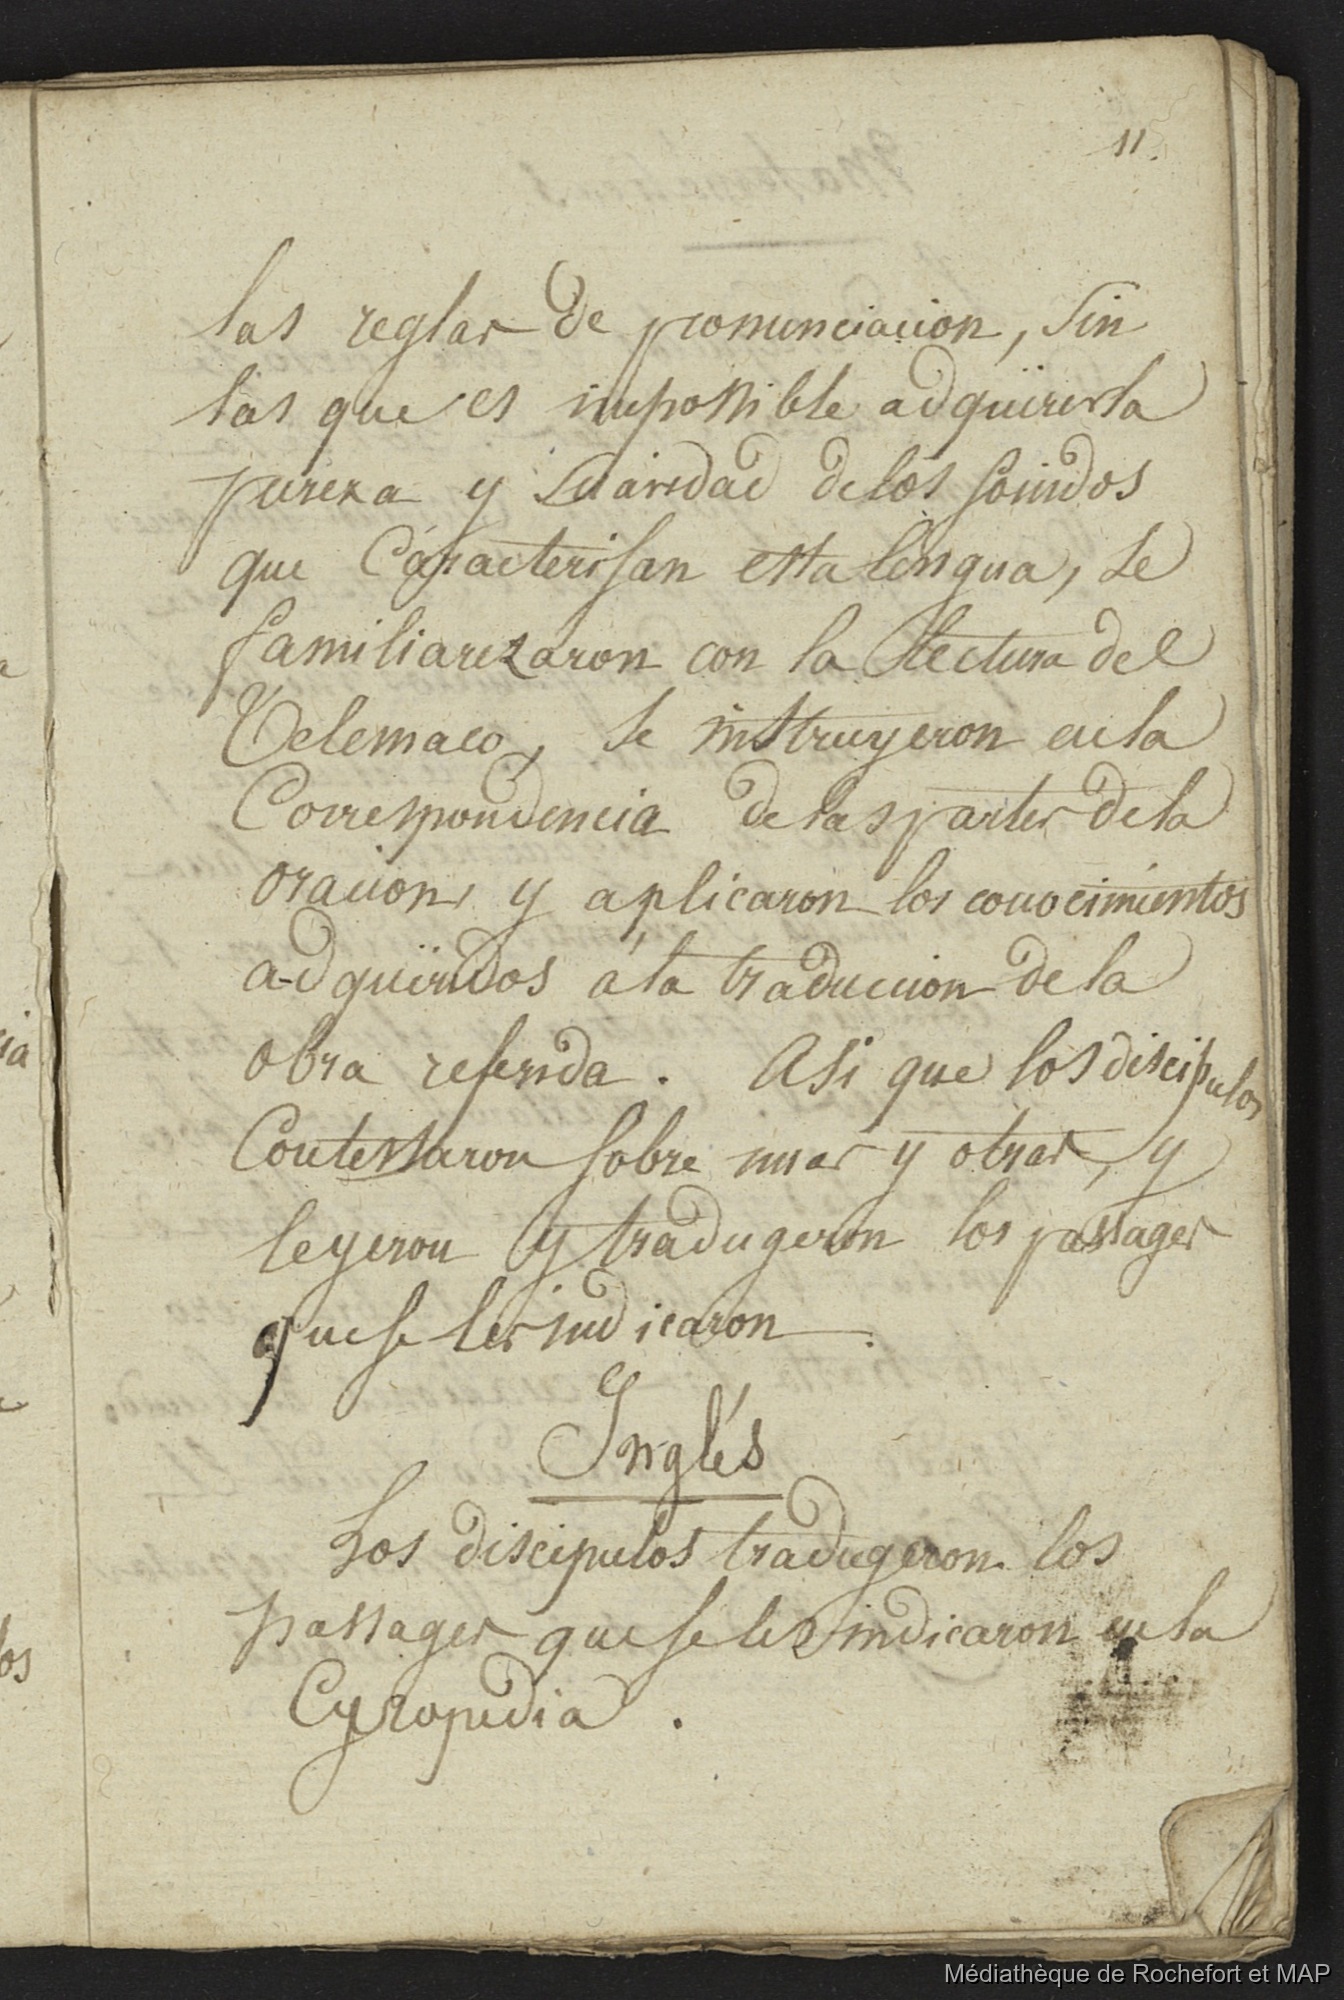 11.
las reglas de pronunciacion, sin
las que es impossible adquirir la
pureza y suavidad de los sonidos
que Caracterisan esta lengua, se
familiarizaron con la lectura del
Telemaco, se instruyeron en la
Correspondencia de las partes de la
oracion, y aplicaron los conocimientos
adquiridos á la traduccion de la
obra referida. Asi que los discipulos
Contestaron sobre unas y otras, y
leyeron y tradugeron los passages
que se les indicaron.
Inglés
Los discipulos tradugeron los
passages que se les indicaron en la
Cyropedia.
Médiathèque de Rochefort et MAP